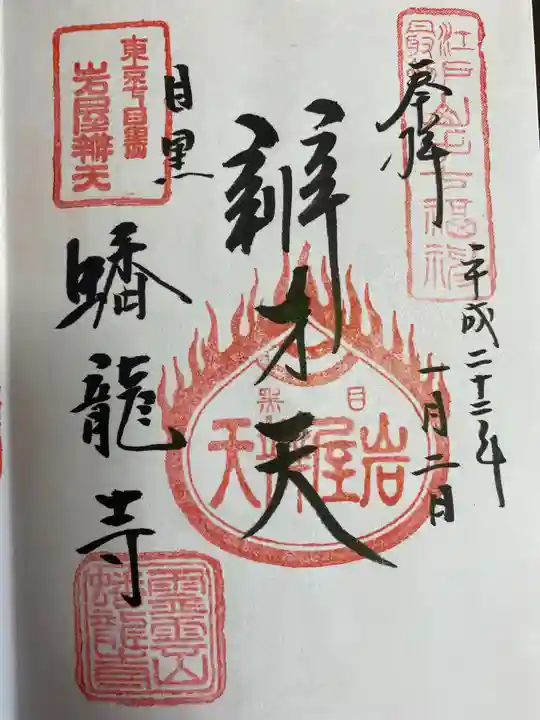 奉拝
平成二十二年
一月二日
辨才天
目黒
蟠龍寺
江戸最初山之手七福神
目黒
岩屋辨天
岩屋辨天
霊雲山
蟠龍寺